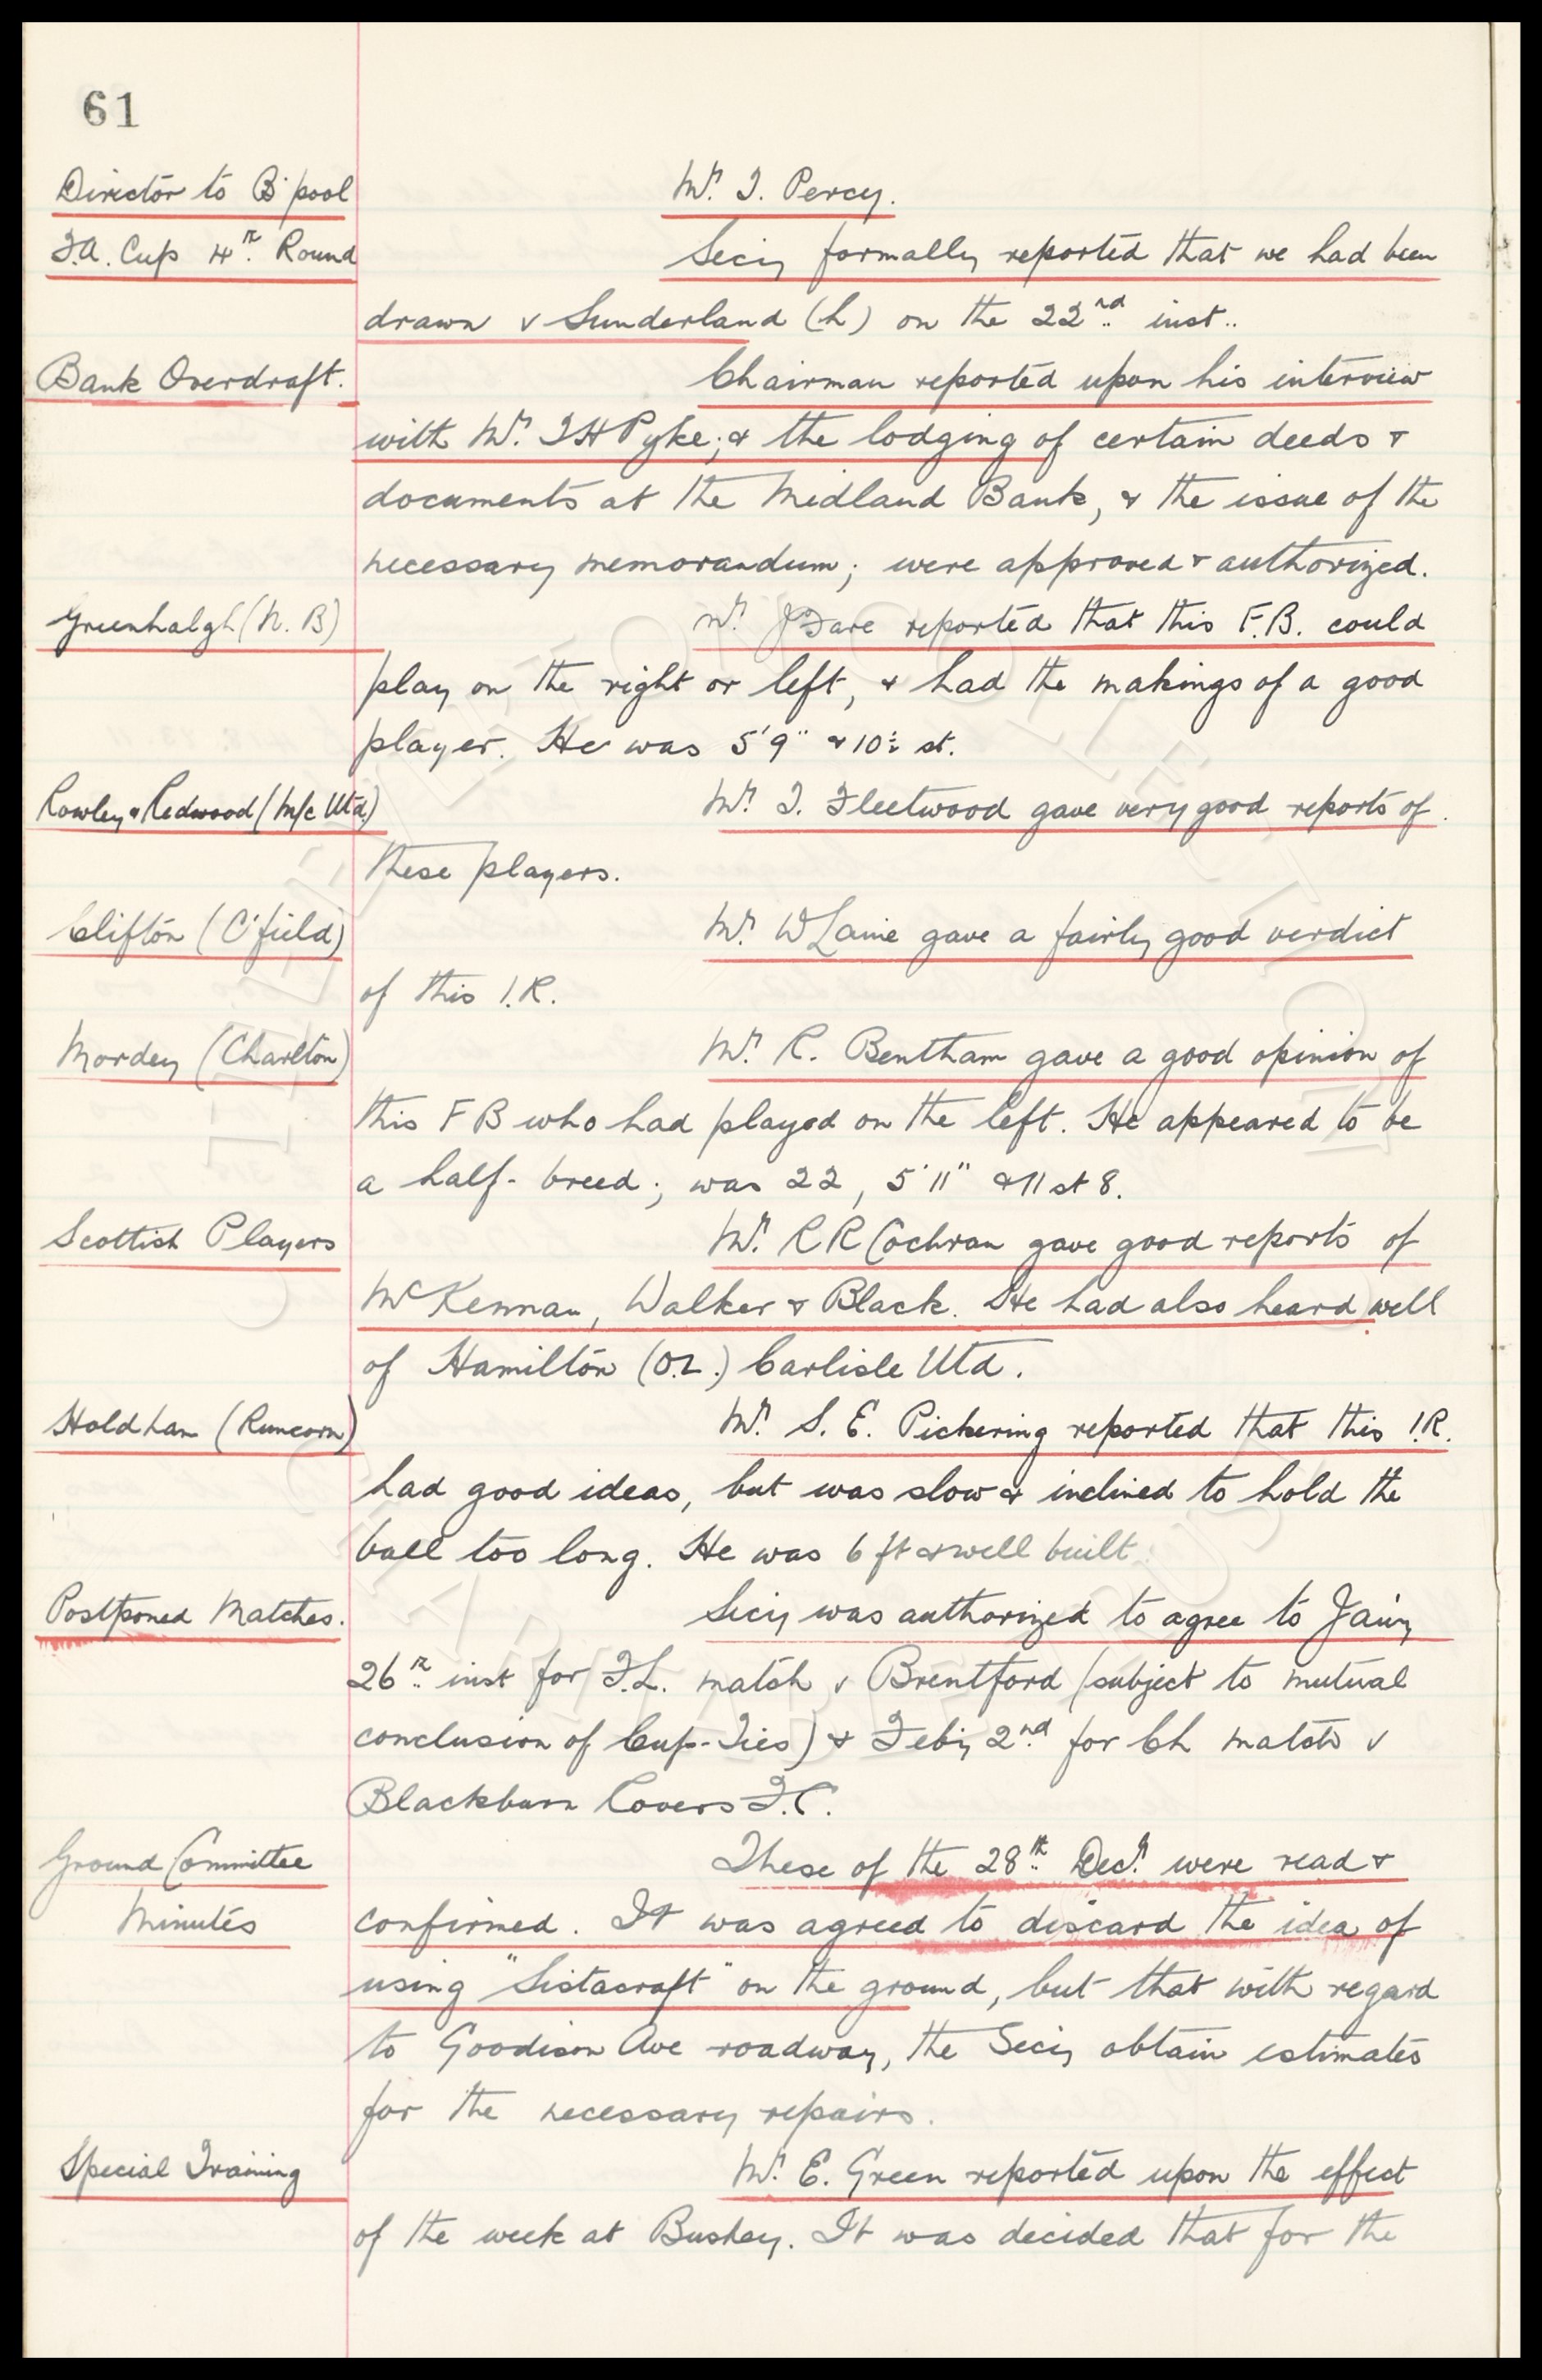 61
Director to B'pool Mr. T. Percy.
F.A. Cup 4th. Round Secy formally reported that we had been
drawn v Sunderland (h) on the 22nd. inst..
Bank Overdraft. Chairman reported upon his interview
with Mr. T H Pyke; & the lodging of certain deeds &
documents at the Midland Bank, & the issue of the
necessary memorandum; were approved & authorized.
Greenhalgh (N. B) Mr. J Fare reported that this F.B. could
play on the right or left, & had the makings of a good
player. He was 5'9" & 10½ st.
Rowley & Redwood (M/c Utd.) Mr. T. Fleetwood gave very good reports of
these players.
Clifton (C'field) Mr. W Laine gave a fairly good verdict
of this I.R.
Mordey (Charlton) Mr. R. Bentham gave a good opinion of
this F B who had played on the left. He appeared to be
a half-breed; was 22, 5'11" & 11 st 8.
Scottish Players Mr. R R Cochran gave good reports of
McKennan, Walker & Black. He had also heard well
of Hamilton (O.L.) Carlisle Utd.
Holdham (Runcorn) Mr. S. E. Pickering reported that this I.R.
had good ideas, but was slow & inclined to hold the
ball too long. He was 6 ft & well built.
Postponed Matches. Secy was authorized to agree to Jany
26th. inst for F.L. match v Brentford (subject to mutual
conclusion of Cup-Ties) & Feby 2nd for Ch match v
Blackburn Rovers F.C.
Ground Committee These of the 28th. Decr. were read &
Minutes confirmed. It was agreed to discard the idea of
using "Sistacraft" on the ground, but that with regard
to Goodison Ave roadway, the Secy obtain estimates
for the necessary repairs.
Special Training Mr. E. Green reported upon the effect
of the week at Bushey. It was decided that for the